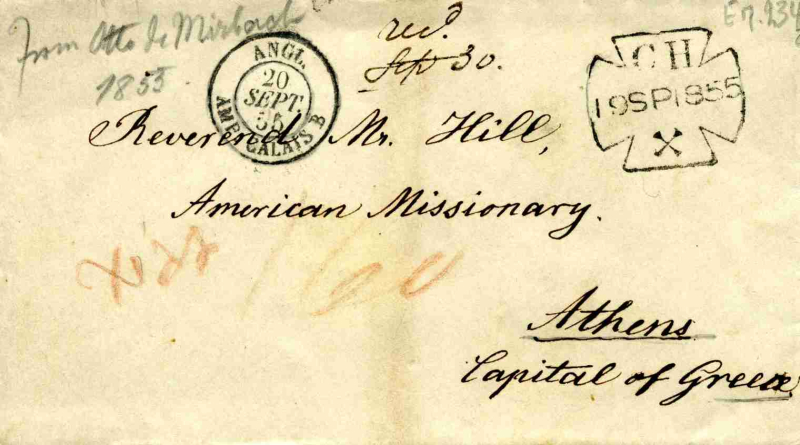 From Otto de Mirbach
1855.
recd.
Sep 30.
E7.234
ANGL.
20
SEPT.
55
AMB. CALAIS B
CH
19SP1855
Reverend Mr. Hill,
American Missionary.
160
Athens
Capital of Greece.